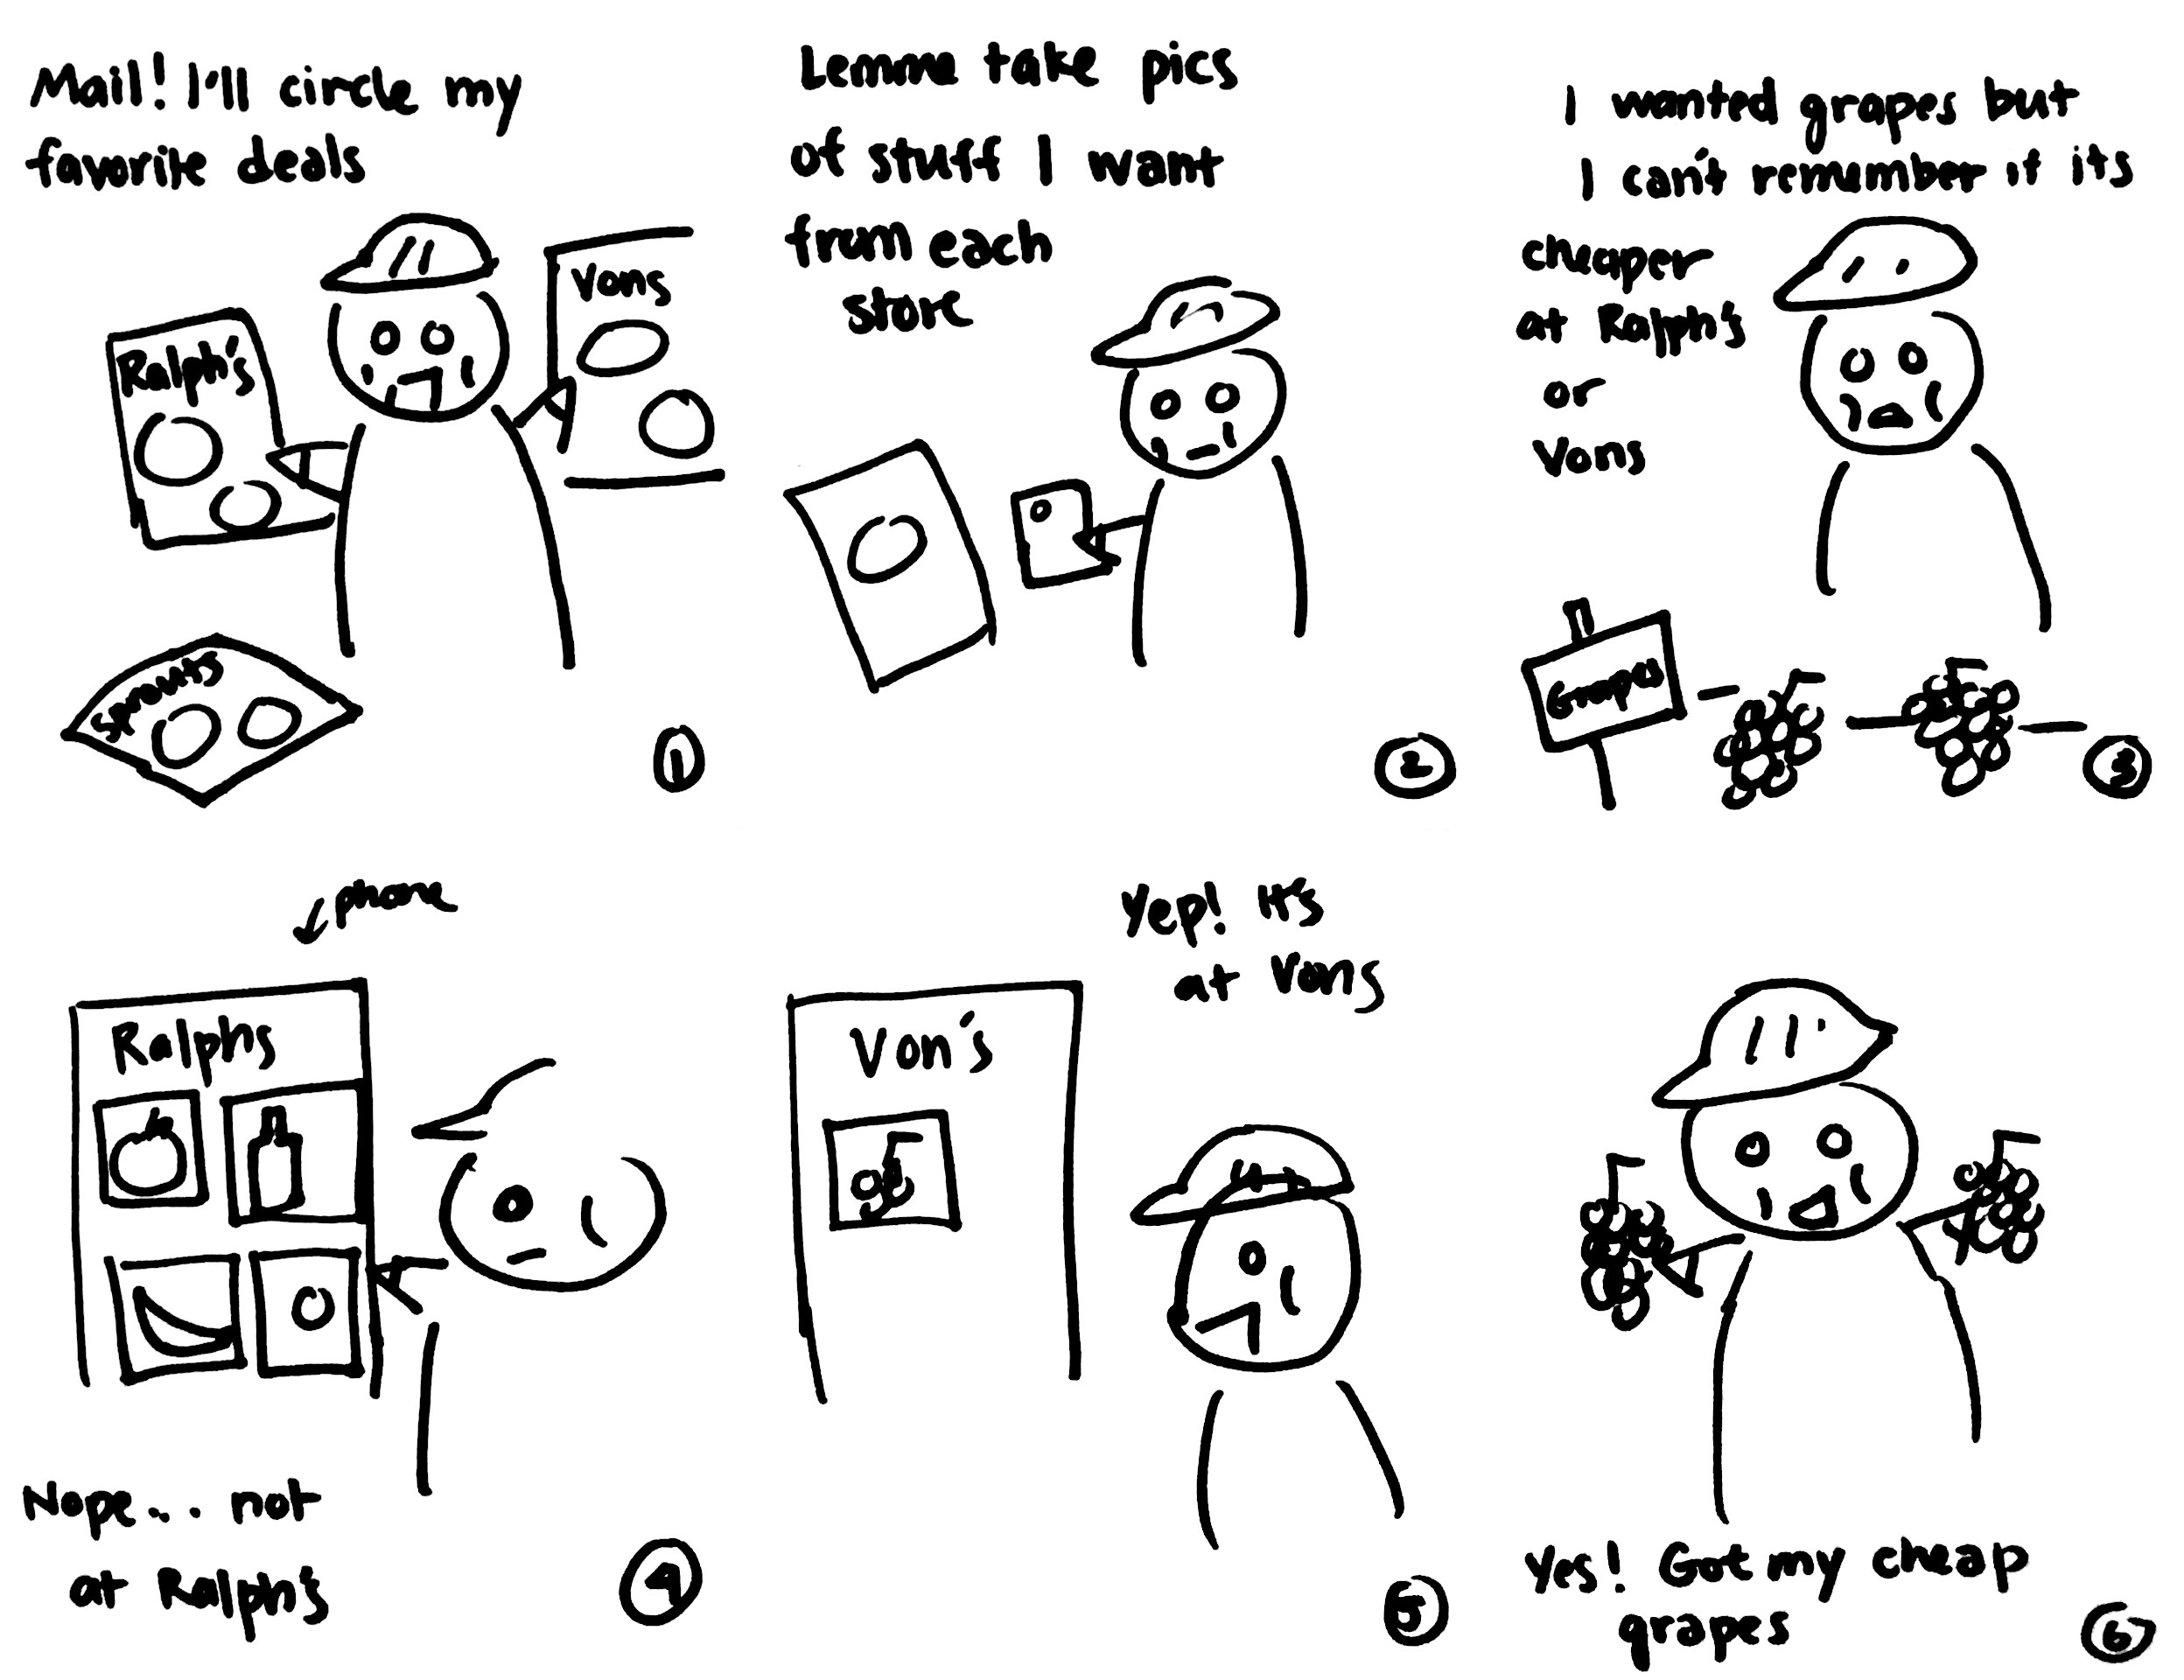 Mail! I'll circle my
favorite deals
Ralph's
Vons
Sprouts
1
Lemme take pics
of stuff I want
from each
store
2
I wanted grapes but
I can't remember if its
cheaper
at Ralph's
or
Vons
Grapes
3
phone
Ralphs
Nope... not
at Ralph's
4
Yep! It's
at Vons
Von's
5
Yes! Got my cheap
grapes
6